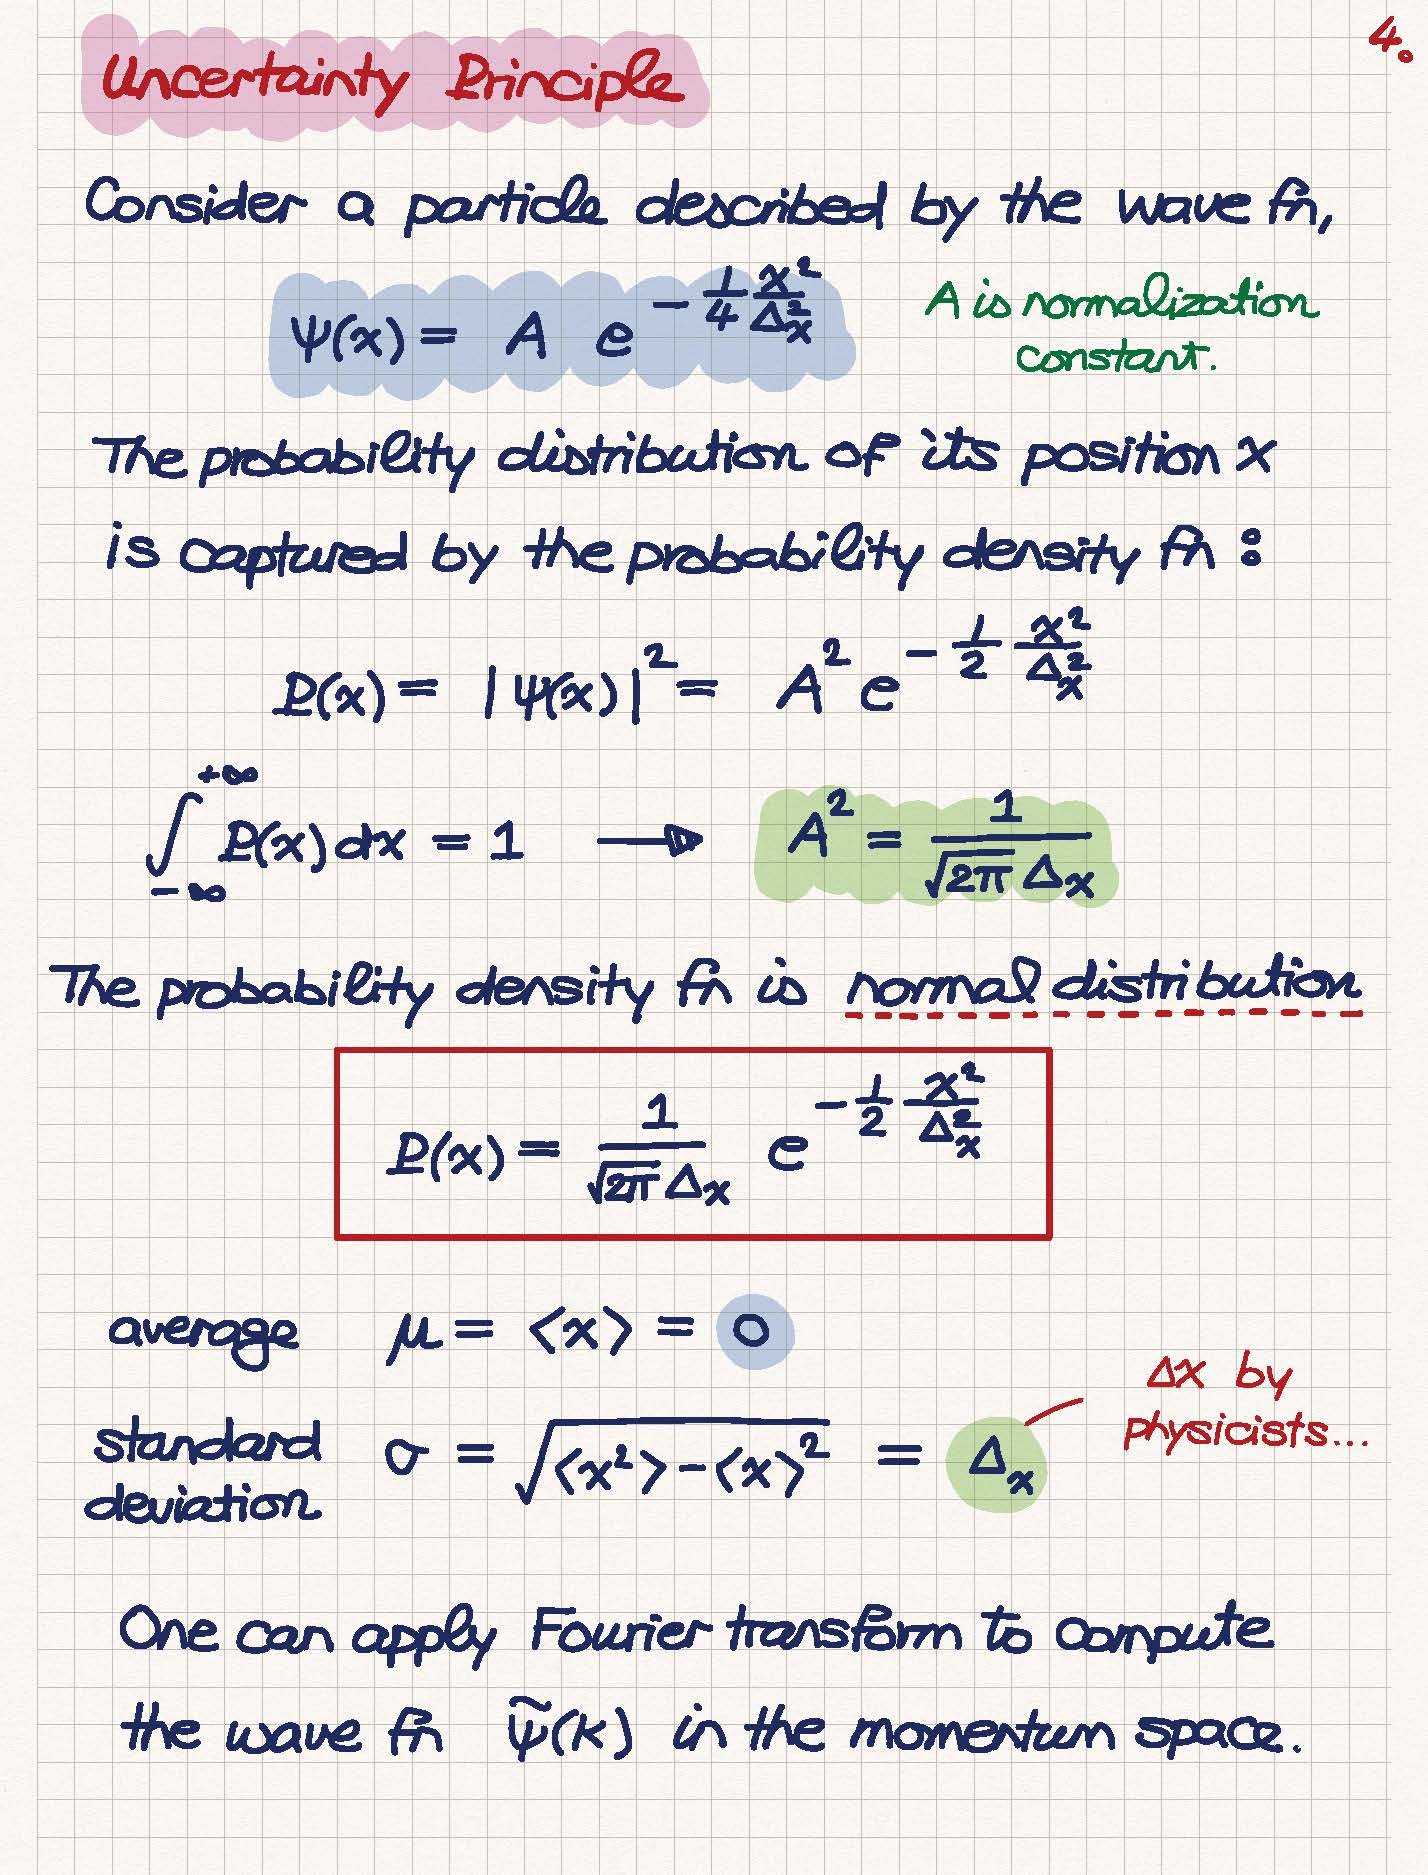 4.
Uncertainty Principle
Consider a particle described by the wave fn,
ψ(x) = A e^{-\frac{1}{4}\frac{x^2}{Δ_x^2}}
A is normalization
constant.
The probability distribution of its position x
is captured by the probability density fn :
P(x) = |ψ(x)|^2 = A^2 e^{-\frac{1}{2}\frac{x^2}{Δ_x^2}}
∫_{-∞}^{+∞} P(x) dx = 1 → A^2 = \frac{1}{\sqrt{2π} Δ_x}
The probability density fn is normal distribution
P(x) = \frac{1}{\sqrt{2π} Δ_x} e^{-\frac{1}{2}\frac{x^2}{Δ_x^2}}
average μ = ⟨x⟩ = 0
Δx by
physicists...
standard
deviation σ = \sqrt{⟨x^2⟩ - ⟨x⟩^2} = Δ_x
One can apply Fourier transform to compute
the wave fn \tilde{ψ}(k) in the momentum space.